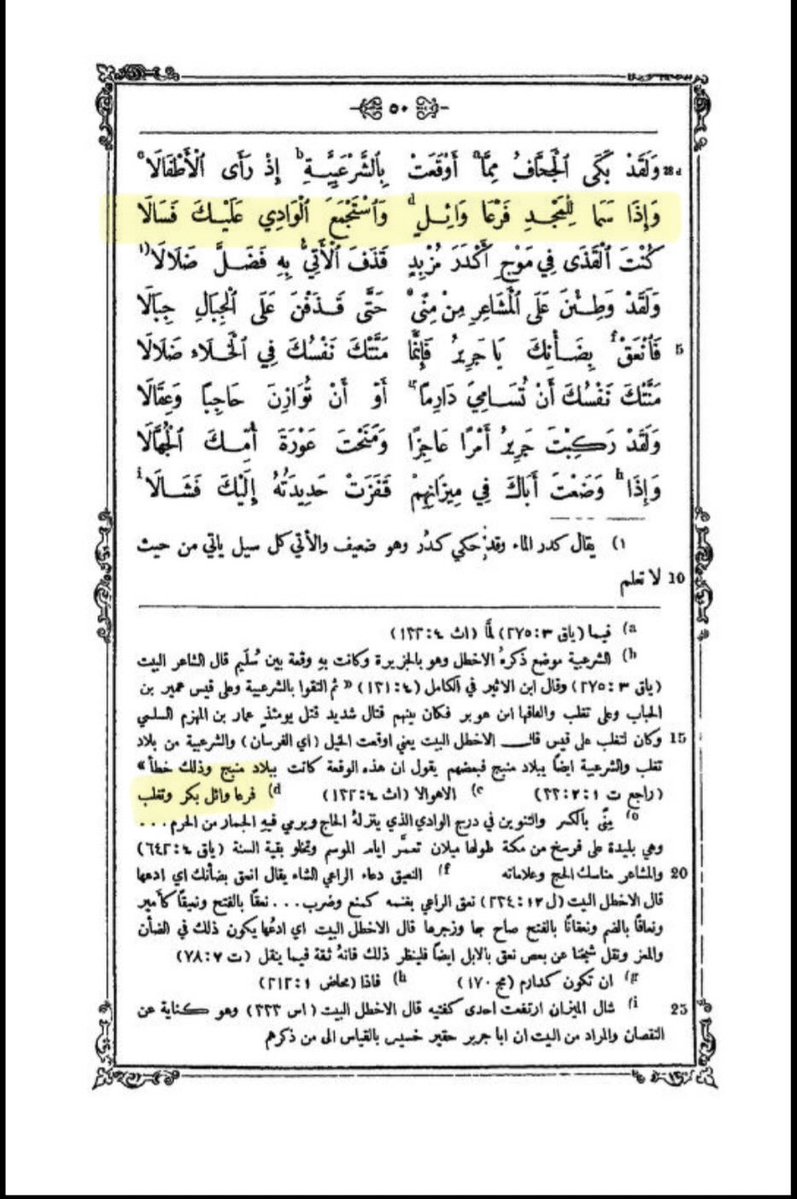 ٥٠
28d وَلَقَدْ بَكَى ٱلْجَحَّافُ مِمَّا a أَوْقَعَتْ بِٱلشَّرْعَبِيَّةِ b إِذْ رَأَى ٱلْأَطْفَالَا c
وَإِذَا سَمَا لِلْمَجْدِ فَرْعَا وَائِلٍ d وَٱسْتَجْمَعَ ٱلْوَادِي عَلَيْكَ فَسَالَا
كُنْتَ ٱلْقَذَى فِي مَوْجِ أَكْدَرَ مُزْبِدٍ قَذَفَ ٱلْأَتِيُّ بِهِ فَضَلَّ ضَلَالَا ١)
وَلَقَدْ وَطِئْنَ عَلَى ٱلْمَشَاعِرِ مِنْ مِنًى e حَتَّى قَذَفْنَ عَلَى ٱلْجِبَالِ جِبَالَا
5 فَٱنْعَقْ f بِضَأْنِكَ يَا جَرِيرُ فَإِنَّمَا مَنَّتْكَ نَفْسُكَ فِي ٱلْخَلَاءِ ضَلَالَا
مَنَّتْكَ نَفْسُكَ أَنْ تُسَامِيَ دَارِمًا g أَوْ أَنْ تُوَازِنَ حَاجِبًا وَعِقَالَا
وَلَقَدْ رَكِبْتَ جَرِيرُ أَمْرًا عَاجِزًا وَمَنَحْتَ عَوْرَةَ أُمِّكَ ٱلْجُهَّالَا
وَإِذَا h وَضَعْتَ أَبَاكَ فِي مِيزَانِهِمْ قَفَزَتْ حَدِيدَتُهُ إِلَيْكَ فَشَالَا i
١) يقال كدر الماء وقد حكي كدُر وهو ضعيف والأتي كل سيل ياتي من حيث
10 لا تعلم
a) فيما (ياق ٣: ٢٧٥) لمَّا (اث ٤: ١٣٢)
b) الشرعبية موضع ذكرهُ الاخطل وهو بالجزيرة وكانت بهِ وقعة بين سُلَيم قال الشاعر البيت
(ياق ٣: ٢٧٥) وقال ابن الاثير في الكامل (٤: ١٣١) « ثم التقوا بالشرعبية وعلى قيس عمير بن
الحباب وعلى تغلب والغافها ابن هوبر فكان بينهم قتال شديد قتل يومئذٍ عمار بن المهزم السلمي
15 وكان لتغلب على قيس قال الاخطل البيت يعني اوقعت الخيل (اي الفرسان) والشرعبية من بلاد
تغلب والشرعبية ايضًا ببلاد منبج فبعضهم يقول ان هذه الوقعة كانت ببلاد منبج وذلك خطأ »
(راجع ت ١: ٣٠٢) c) الاهوالا (اث ٤: ١٣٢) d) فرعا وائل بكر وتغلب
e) مِنًى بالكسر والتنوين في درج الوادي الذي ينزلهُ الحاج ويرمي فيهِ الجمار من الحرم ...
وهي بليدة على فرسخ من مكة طولها ميلان تعمَّر ايام الموسم وتخلو بقية السنة (ياق ٤: ٦٤٢)
20 والمشاعر مناسك الحج وعلاماته f) النعيق دعاء الراعي الشاء يقال انعق بضأنك اي ادعها
قال الاخطل البيت (ل ١٢: ٢٣٤) نعق الراعي بغنمه كمنع وضرب ... نعقًا بالفتح ونعيقًا كأمير
ونعاقًا بالضم ونعقانًا بالفتح صاح بها وزجرها قال الاخطل البيت اي ادعُها يكون ذلك في الضأن
والمعز ونقل شيخنا عن بعص نعق بالابل ايضًا فلينظر ذلك فانهُ ثقة فيما ينقل (ت ٧: ٧٨)
g) ان تكون كدارم (مج ١٧٠) h) فاذا (محاض ١: ٢١٢)
25 i) شال الميزان ارتفعت احدى كفتيه قال الاخطل البيت (اس ٣٣٣) وهو كناية عن
النقصان والمراد من البيت ان ابا جرير حقير خسيس بالقياس الى من ذكرهم